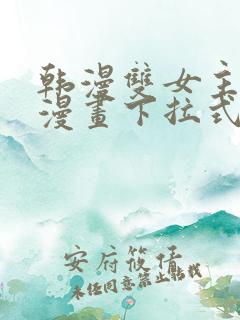 韩漫雙女主
漫畫下拉式
安府筱偌
未经同意禁止転载